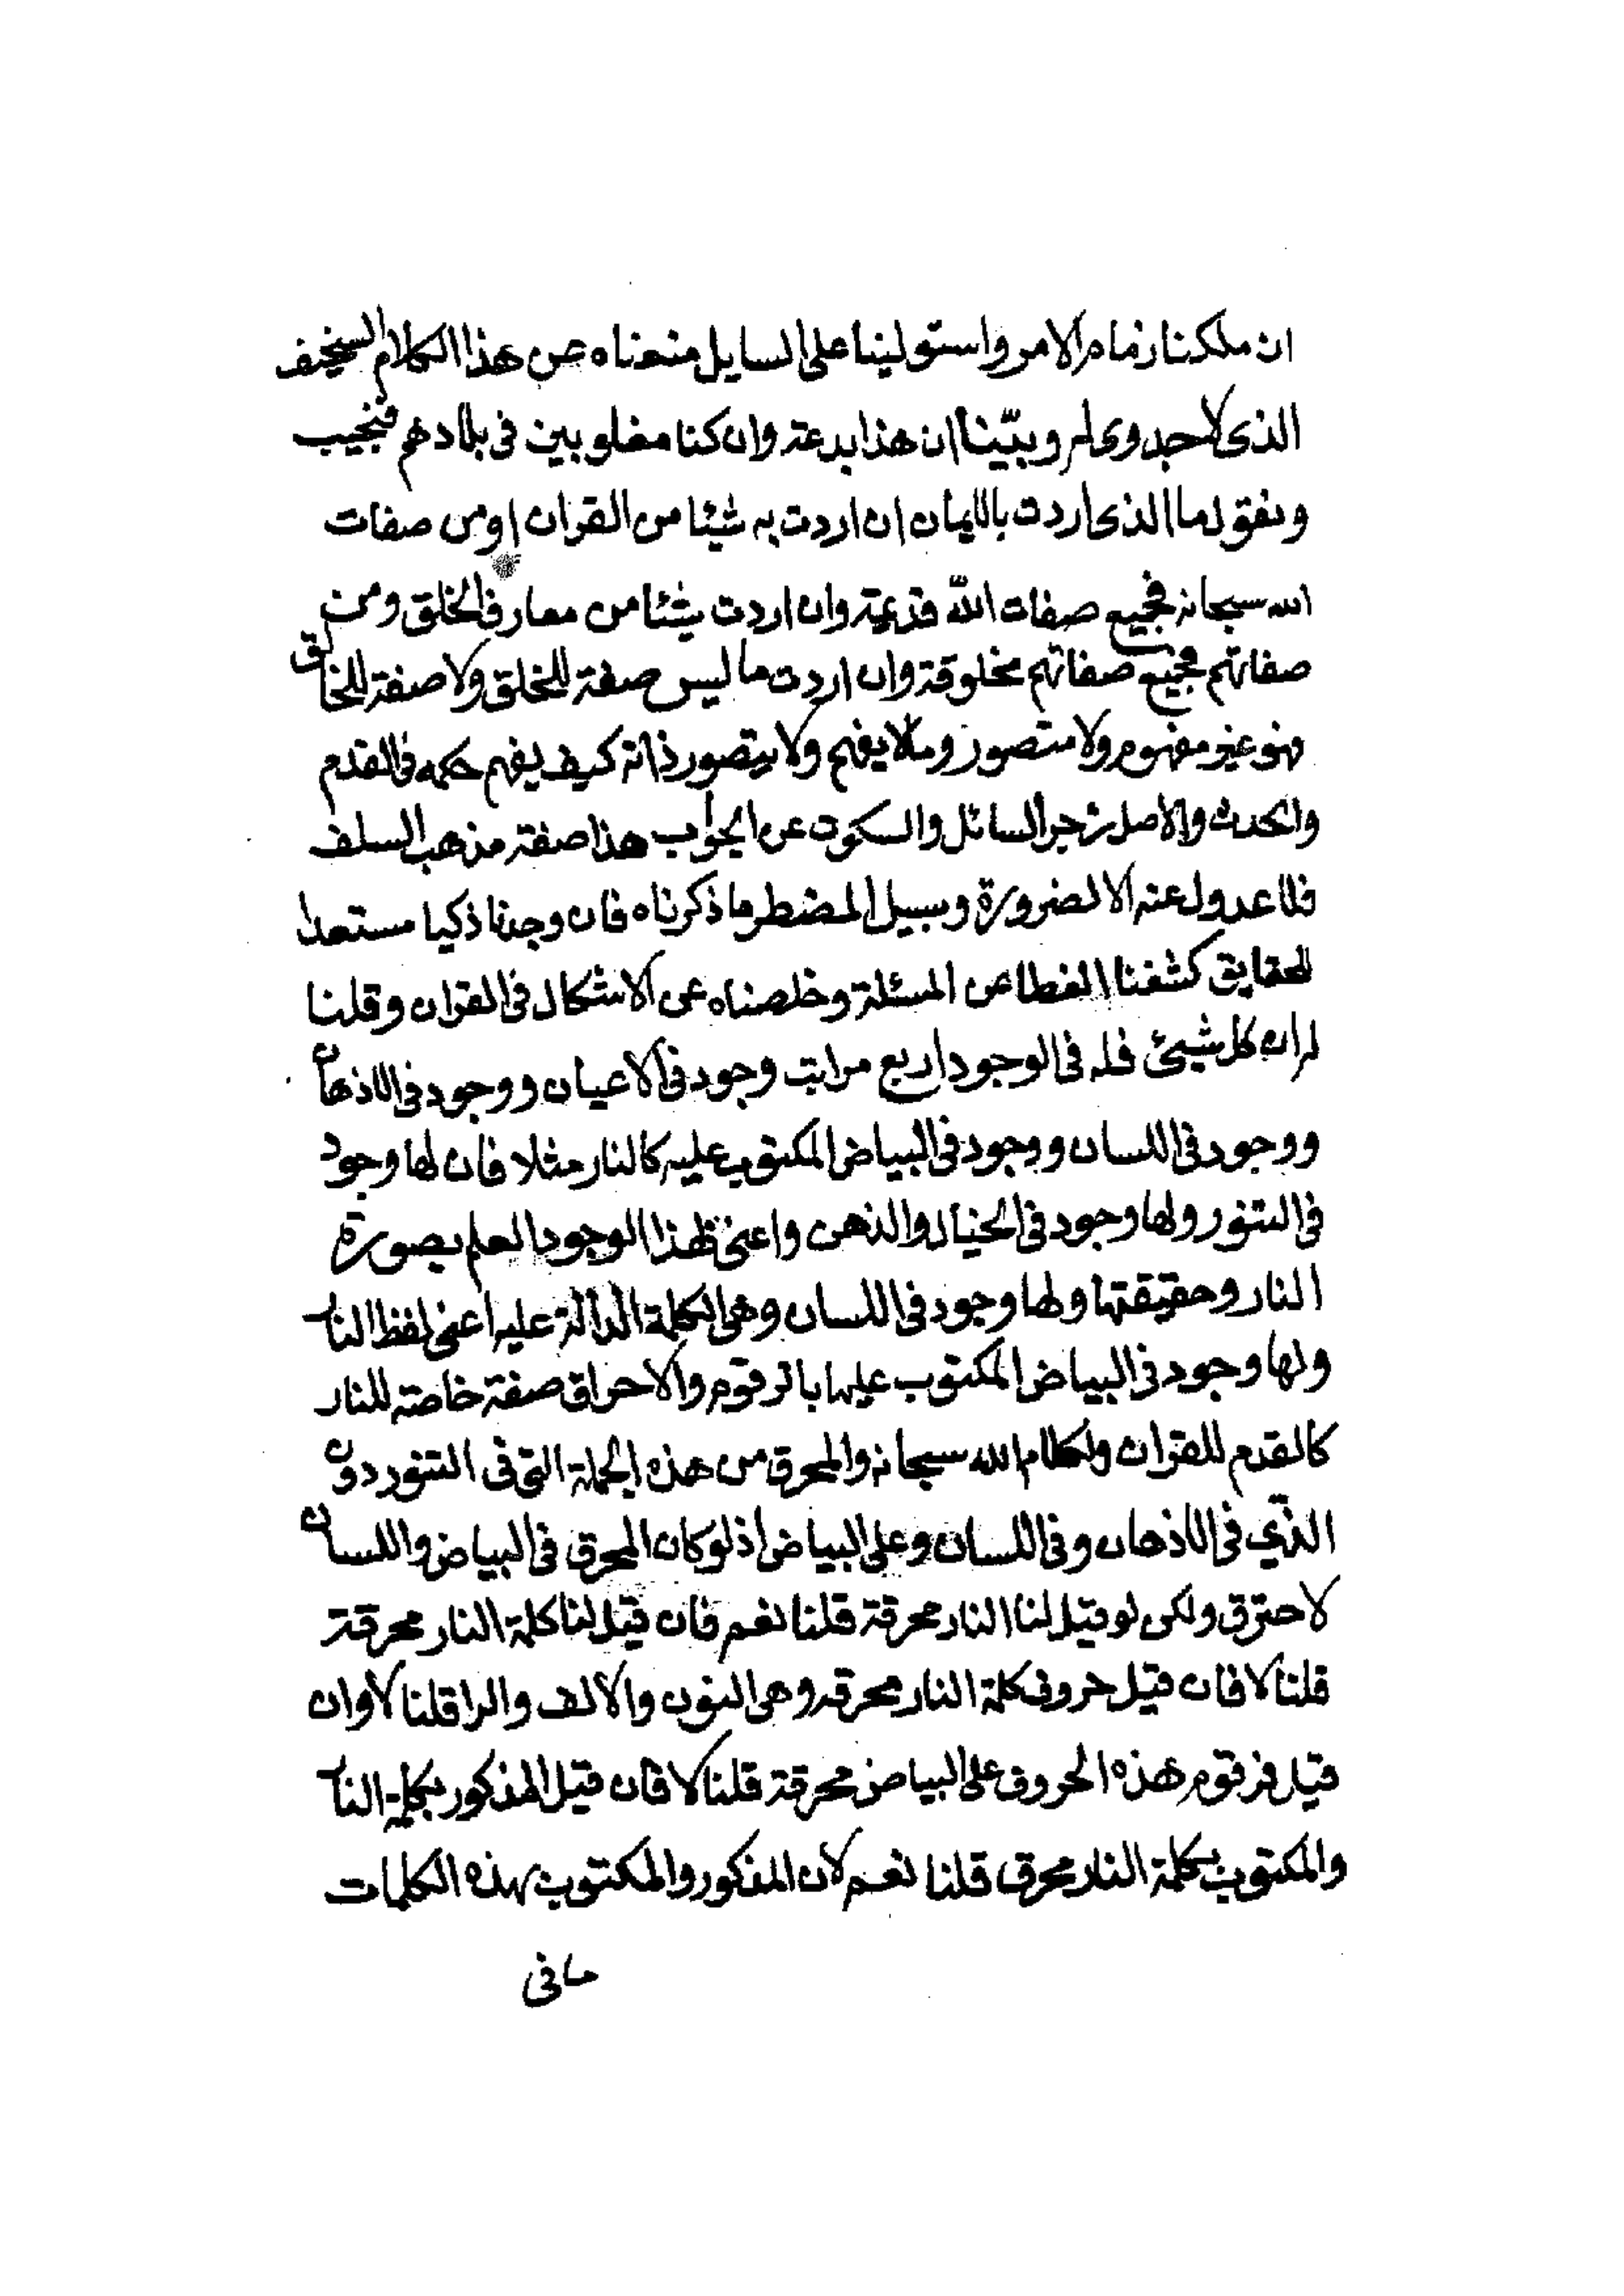 ان ملكنا زمام الامر واستولينا على السايل منعناه عن هذا الكلام السخيف
الذى لا جدوى له وبيّنا ان هذا بدعة وان كنا مغلوبين فى بلادهم فنجيب
ونقول ما الذى اردت بالايمان ان اردت به شيئا من القران او من صفات
الله سبحانه فجميع صفات الله قديمة وان اردت شيئا من معارف الخلق ومن
صفاتهم فجميع صفاتهم مخلوقة وان اردت ما ليس صفة للخلق ولا صفة للخالق
فهو غير مفهوم ولا متصور وما لا يفهم ولا يتصور ذاته كيف يفهم حكمه فى القدم
والحدث والاصل زجر السائل والسكوت عن الجواب هذا صفة مذهب السلف
فلا عدول عنه الا لضرورة وسبيل المضطر ما ذكرناه فان وجدنا ذكيا مستعدا
للحقايق كشفنا الغطا عن المسئلة وخلصناه عن الاشكال فى القران وقلنا
له ان كل شيئ فله فى الوجود اربع مراتب وجود فى الاعيان ووجود فى الاذهان
ووجود فى اللسان ووجود فى البياض المكتوب عليه كالنار مثلا فان لها وجود
فى التنور ولها وجود فى الخيال والذهن واعنى بهذا الوجود العلم بصورة
النار وحقيقتها ولها وجود فى اللسان وهى الكلمة الدالة عليه اعنى لفظ النار
ولها وجود فى البياض المكتوب عليها بالرقوم والاحراق صفة خاصة للنار
كالقدم للقران ولكلام الله سبحانه والمحرق من هذه الجملة التى فى التنور دون
الذّي فى الاذهان وفى اللسان وعلى البياض اذ لو كان المحرق فى البياض واللسان
لاحترق ولكن لو قيل لنا النار محرقة قلنا نعم فان قيل لنا كلمة النار محرقة
قلنا لا فان قيل حروف كلمة النار محرقه وهى النون والالف والرا قلنا لا وان
قيل فرقوم هذه الحروف على البياض محرقة قلنا لا فان قيل المذكور بكلمة النار
والمكتوب بكلمة النار محرق قلنا نعم لان المذكور والمكتوب بهذه الكلمات
ما فى